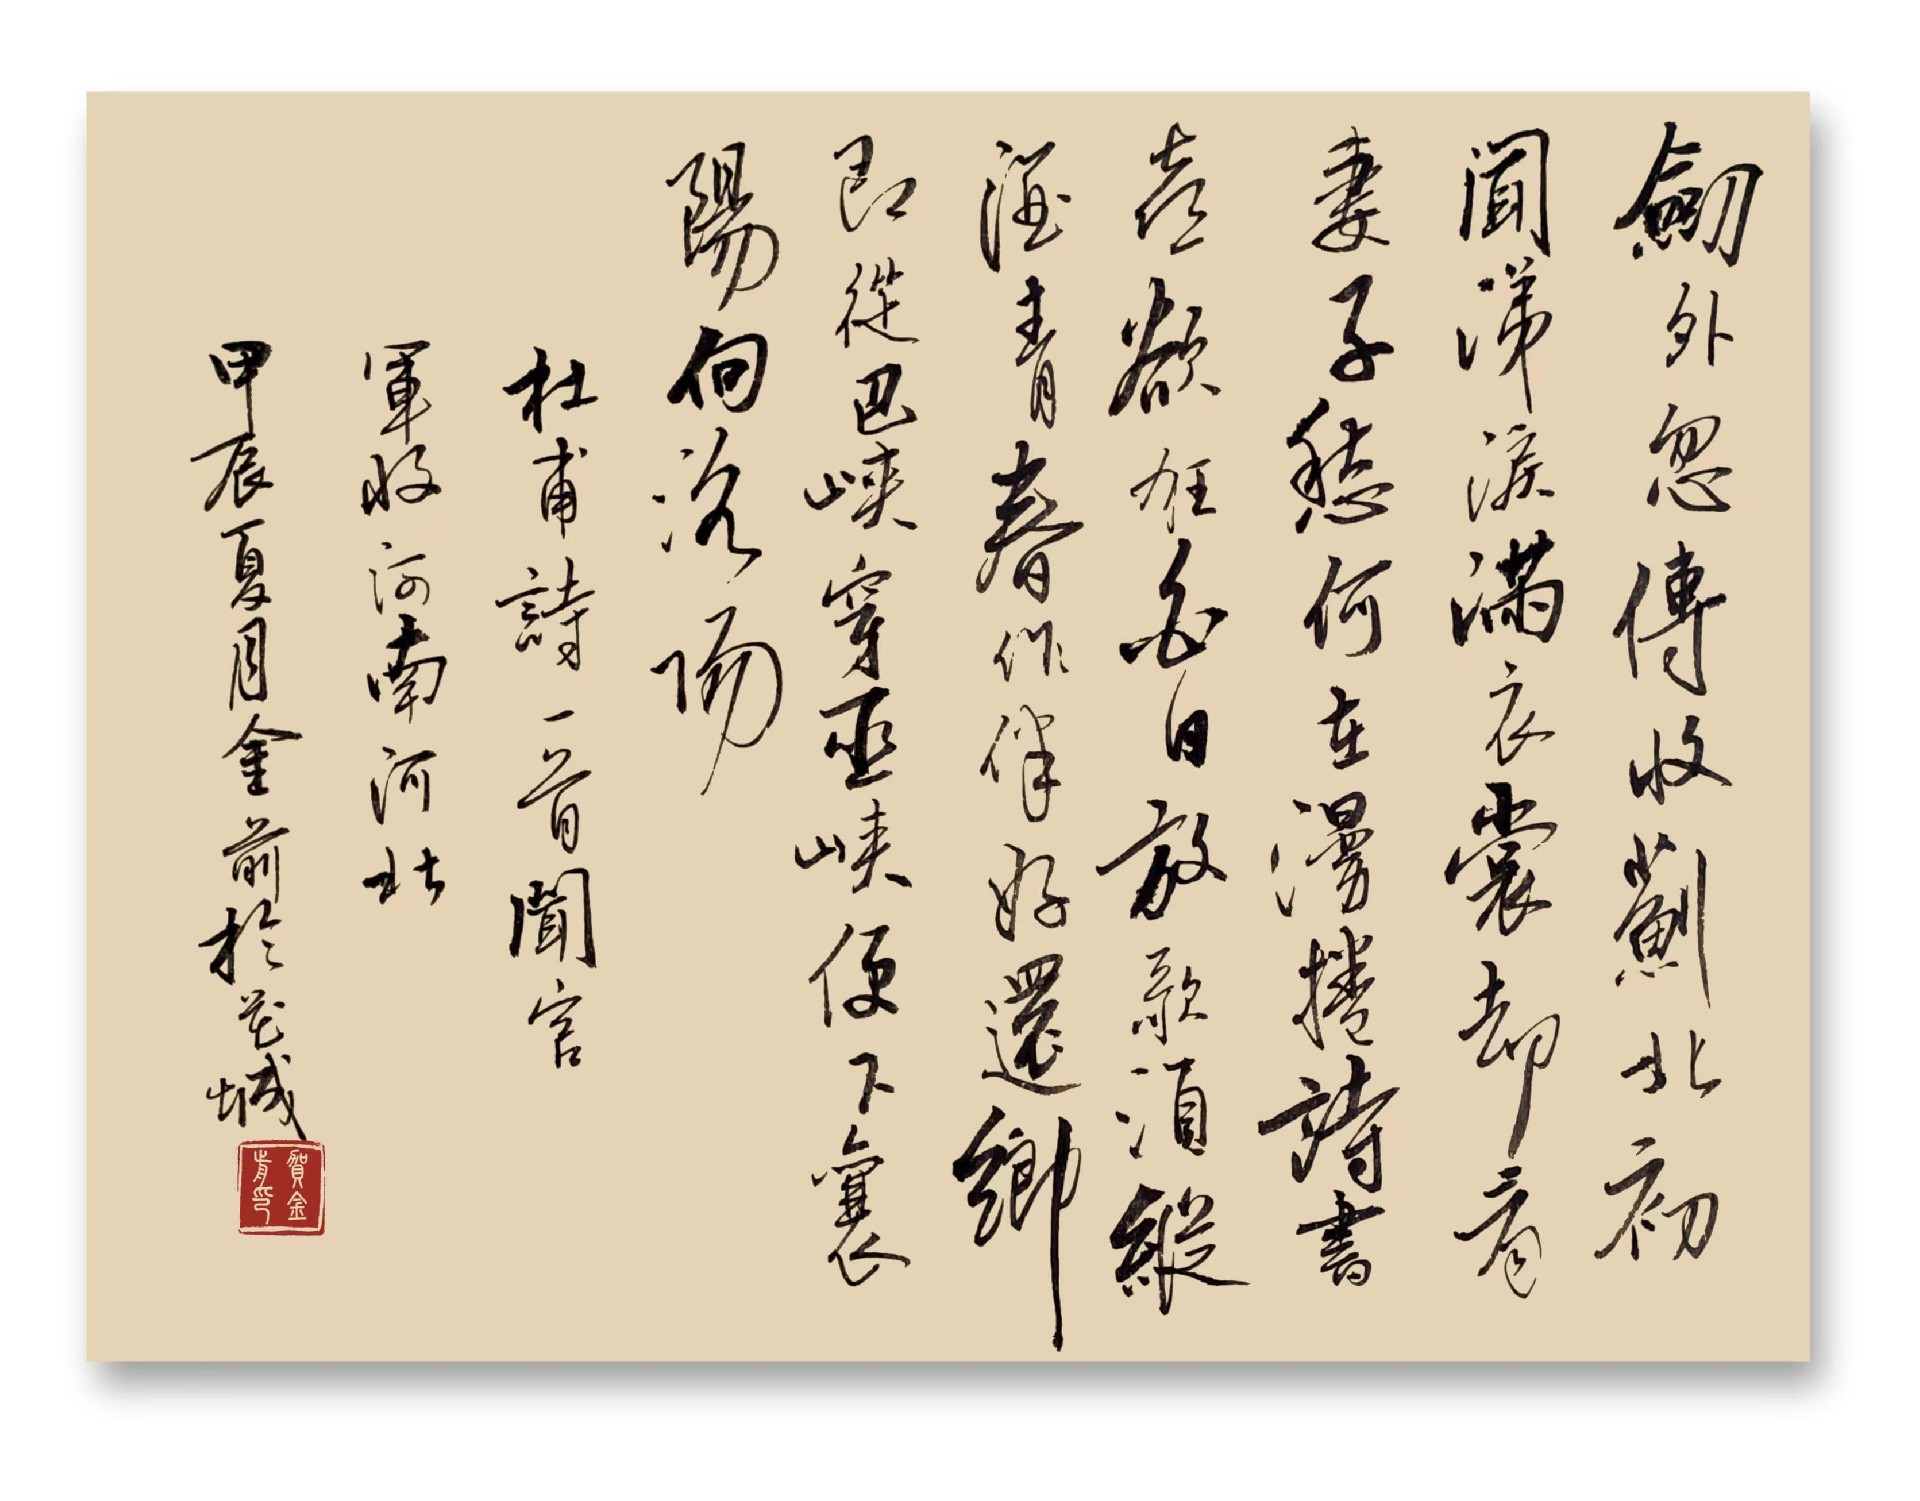 劒外忽傳收薊北初
聞涕淚滿衣裳却看
妻子愁何在漫捲詩書
喜欲狂白日放歌須縱
酒青春作伴好還鄉
即從巴峽穿巫峽便下襄
陽向洛陽
杜甫詩一首聞官
軍收河南河北
甲辰夏月金前於花城
賀金
前印